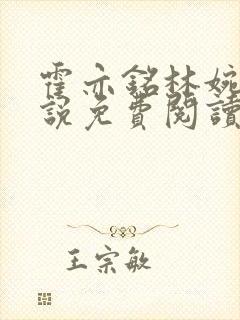 霍亦銘林婉
說免費閱讀
王宗敏